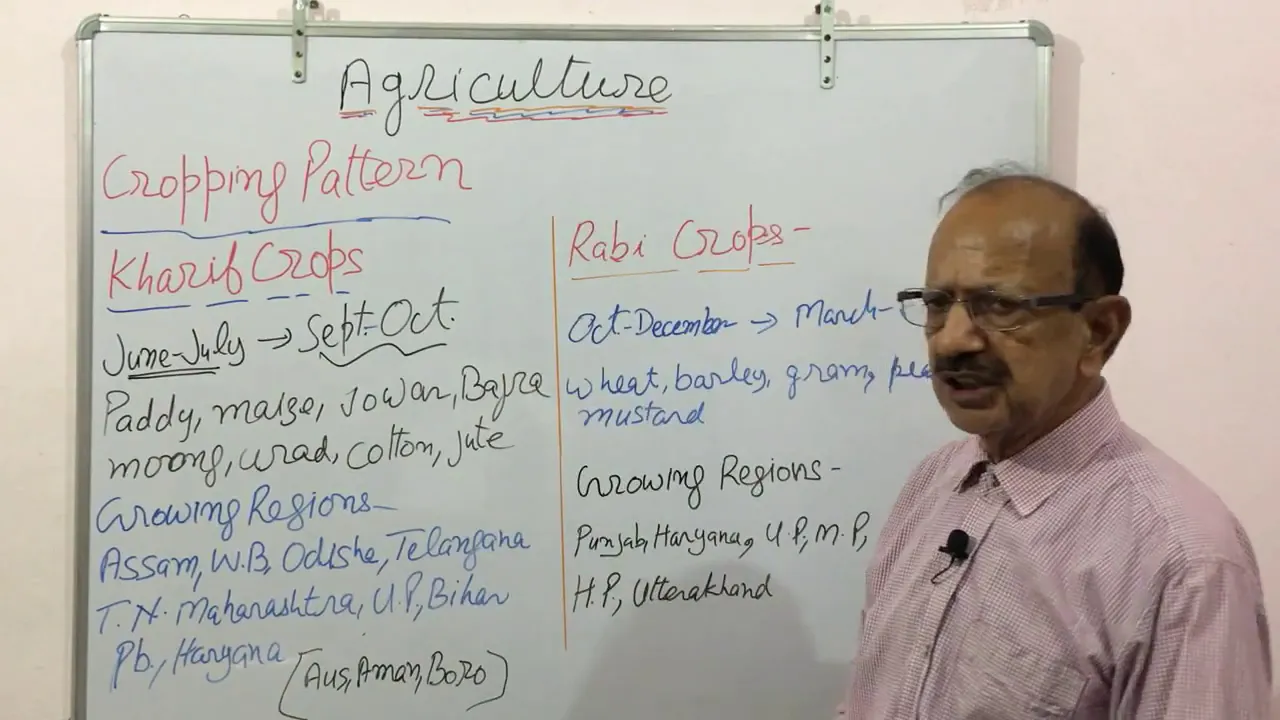 Agriculture
Cropping Pattern
Kharif Crops
June-July → Sept-Oct.
Paddy, maize, Jowar, Bajra
moong, urad, cotton, jute
Growing Regions-
Assam, W.B, Odisha, Telangana
T.N. Maharashtra, U.P, Bihar
Pb., Haryana
[Aus, Aman, Boro)
Rabi Crops-
Oct-December → March-
wheat, barley, gram,
mustard
Growing Regions-
Punjab, Haryana, U.P, M.P,
H.P, Utterakhand